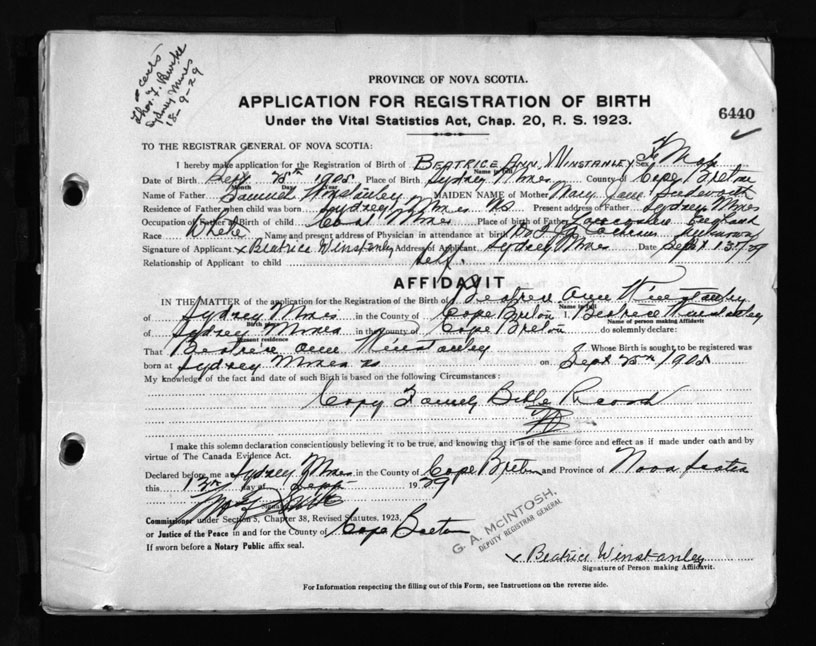 certs
Thos. F. Burke
Sydney Mines
18-9-29
PROVINCE OF NOVA SCOTIA.
APPLICATION FOR REGISTRATION OF BIRTH
Under the Vital Statistics Act, Chap. 20, R. S. 1923.
6440
TO THE REGISTRAR GENERAL OF NOVA SCOTIA:
I hereby make application for the Registration of Birth of BEATRICE ANN WINSTANLEY Sex F
Name in full
Date of Birth Sept. 1905 Place of Birth Sydney Mines County of Cape Breton
Month Day Year
Name of Father Samuel Winstanley MAIDEN NAME of Mother Mary Jane
Residence of Father when child was born Sydney Mines NS Present address of Father Sydney Mines
Occupation of Father at Birth of child Coal Place of birth of Father Lancashire England
Race White Name and present address of Physician in attendance at birth Dr
Signature of Applicant x Beatrice Winstanley Address of Applicant Sydney Mines Date Sept 13th/29
Relationship of Applicant to child self.
AFFIDAVIT
IN THE MATTER of the application for the Registration of the Birth of Beatrice Ann Winstanley
Name in full
of Sydney Mines in the County of Cape Breton I, Beatrice Winstanley
Birth place Name of person making Affidavit
of Sydney Mines in the county of Cape Breton do solemnly declare:
Present residence
That Beatrice Ann Winstanley Whose Birth is sought to be registered was
born at Sydney Mines NS on Sept 1905
My knowledge of the fact and date of such Birth is based on the following Circumstances:
Copy Family Bible Record
I make this solemn declaration conscientiously believing it to be true, and knowing that it is of the same force and effect as if made under oath and by
virtue of The Canada Evidence Act.
Declared before me at Sydney Mines in the County of Cape Breton and Province of Nova Scotia
this 13th day of Sept 1929
Commissioner under Section 5, Chapter 38, Revised Statutes, 1923,
or Justice of the Peace in and for the County of Cape Breton
If sworn before a Notary Public affix seal.
G. A. McINTOSH,
DEPUTY REGISTRAR GENERAL
x Beatrice Winstanley
Signature of Person making Affidavit.
For Information respecting the filling out of this Form, see Instructions on the reverse side.